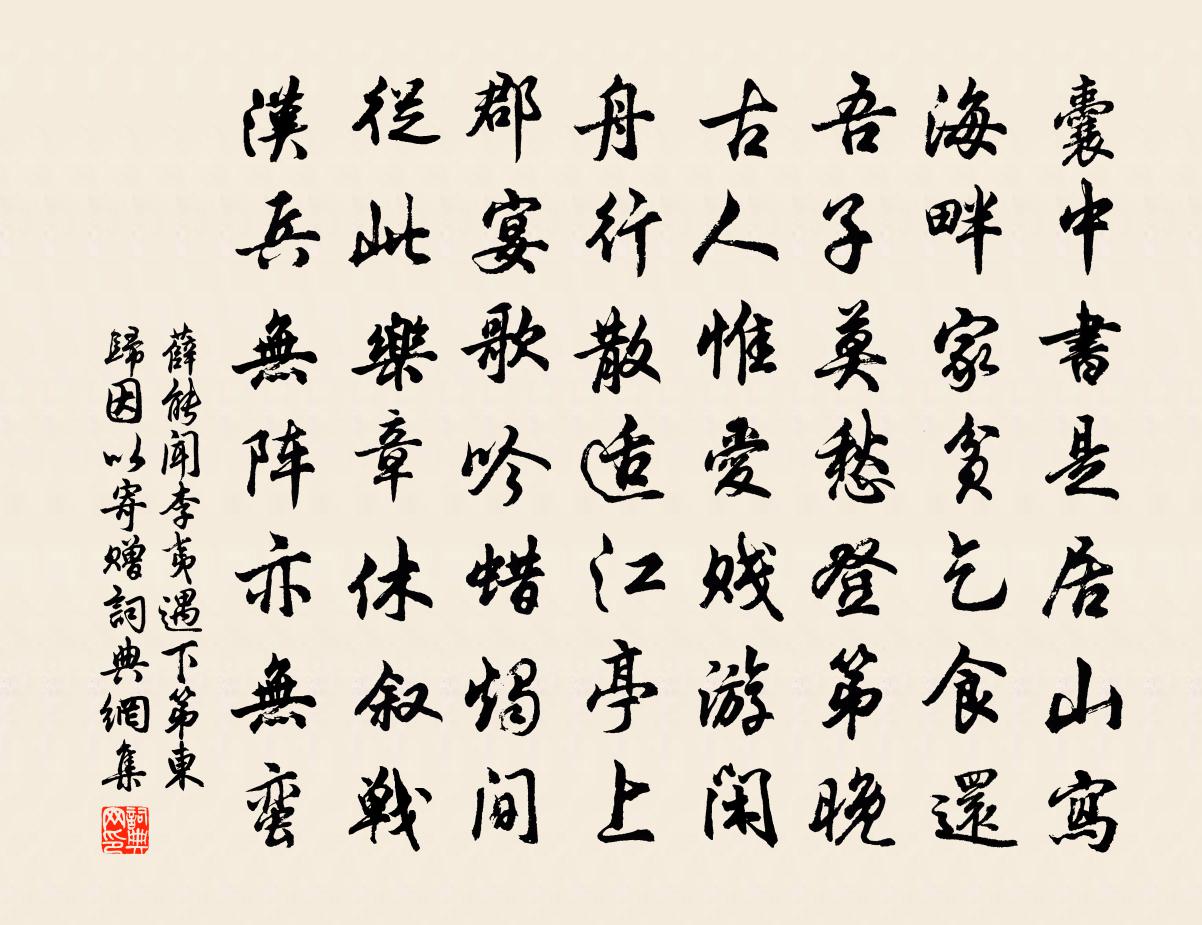 囊中書是居山寫
海畔家貧乞食還
吾子莫愁登第晚
古人惟愛賤游閑
舟行散适江亭上
郡宴歌吟蜡燭間
從此樂章休叙戰
漢兵無陣亦無蠻
薛能聞李夷遇下第東
歸因以寄贈詞典網集
詞典
网印